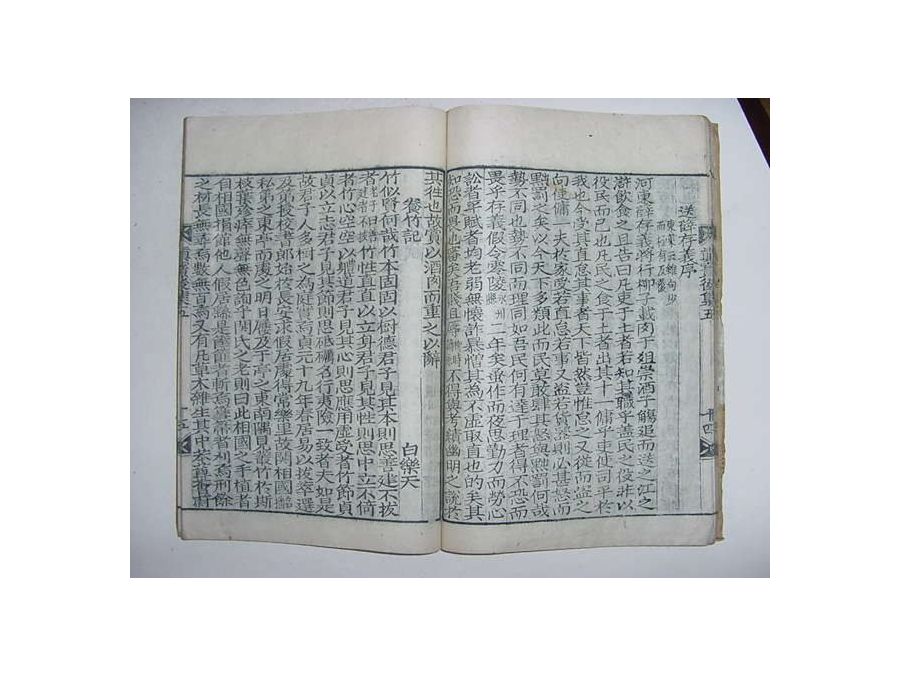 送薛存義序
河東薛存義將行柳子載肉于俎崇酒于觴追而送之江之
滸飲食之且告曰凡吏于土者若知其職乎蓋民之役非以
役民而已也凡民之食于土者出其十一傭乎吏使司平於
我也今受其直怠其事者天下皆然豈惟怠之又從而盜之
向使傭一夫於家受若直怠若事又盜若貨器則必甚怒而
黜罰之矣以今天下多類此而民莫敢肆其怒與黜罰何哉
勢不同也勢不同而理同如吾民何有達于理者得不恐而
畏乎存義假令零陵永州二年矣蚤作而夜思勤力而勞心
訟者平賦者均老弱無懷詐暴憎其為不虛取直也的矣其
知恐而畏也審矣吾賤且辱不得與考績幽明之說於
其往也故賞以酒肉而重之以辭
養竹記 白樂天
竹似賢何哉竹本固固以樹德君子見其本則思善建不拔
者竹性直直以立身君子見其性則思中立不倚
者竹心空空以體道君子見其心則思應用虛受者竹節貞
貞以立志君子見其節則思砥礪名行夷險一致者夫如是
故君子人多樹之為庭實焉貞元十九年春居易以拔萃選
及第授校書郎始於長安求假居處得常樂里故關相國
私第之東亭而處之明日履及于亭之東南隅見叢竹於斯
枝葉殄瘁無聲無色詢乎關氏之老則曰此相國之手植者
自相國捐館他人假居繇是筐篚者斬焉篲箒者刈焉刑餘
之材長無尋焉數無百焉又有凡草木雜生其中菶茸薈蔚